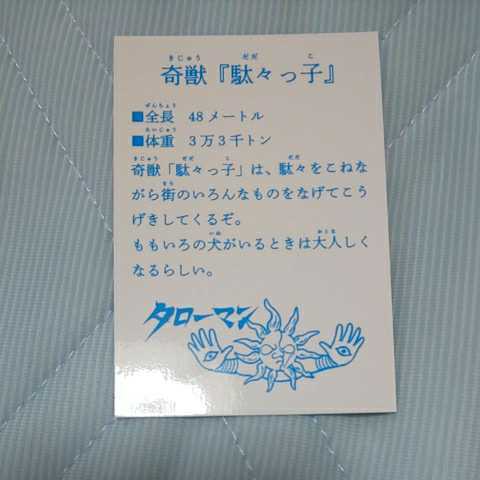 きじゅう だだ こ
奇獣『駄々っ子』
ぜんちょう
■全長 48メートル
たいじゅう
■体重 3万3千トン
きじゅう だだ こ だだ
奇獣「駄々っ子」は、駄々をこねな
まち
がら街のいろんなものをなげてこう
げきしてくるぞ。
いぬ おとな
ももいろの犬がいるときは大人しく
なるらしい。
タローマン